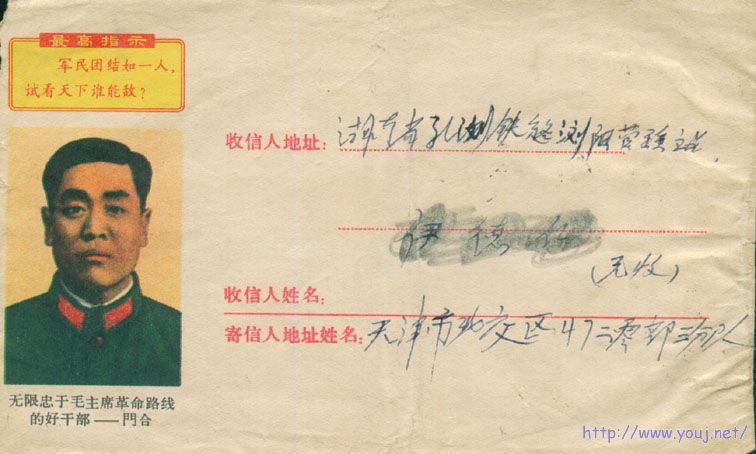 最高指示
军民团结如一人，
试看天下谁能敌？
收信人地址：湖南省 铁 浏阳营
德
收信人姓名： (元收)
寄信人地址姓名：天津市北交区47 零部 队
无限忠于毛主席革命路线
的好干部——門合
http://www.youj.net/